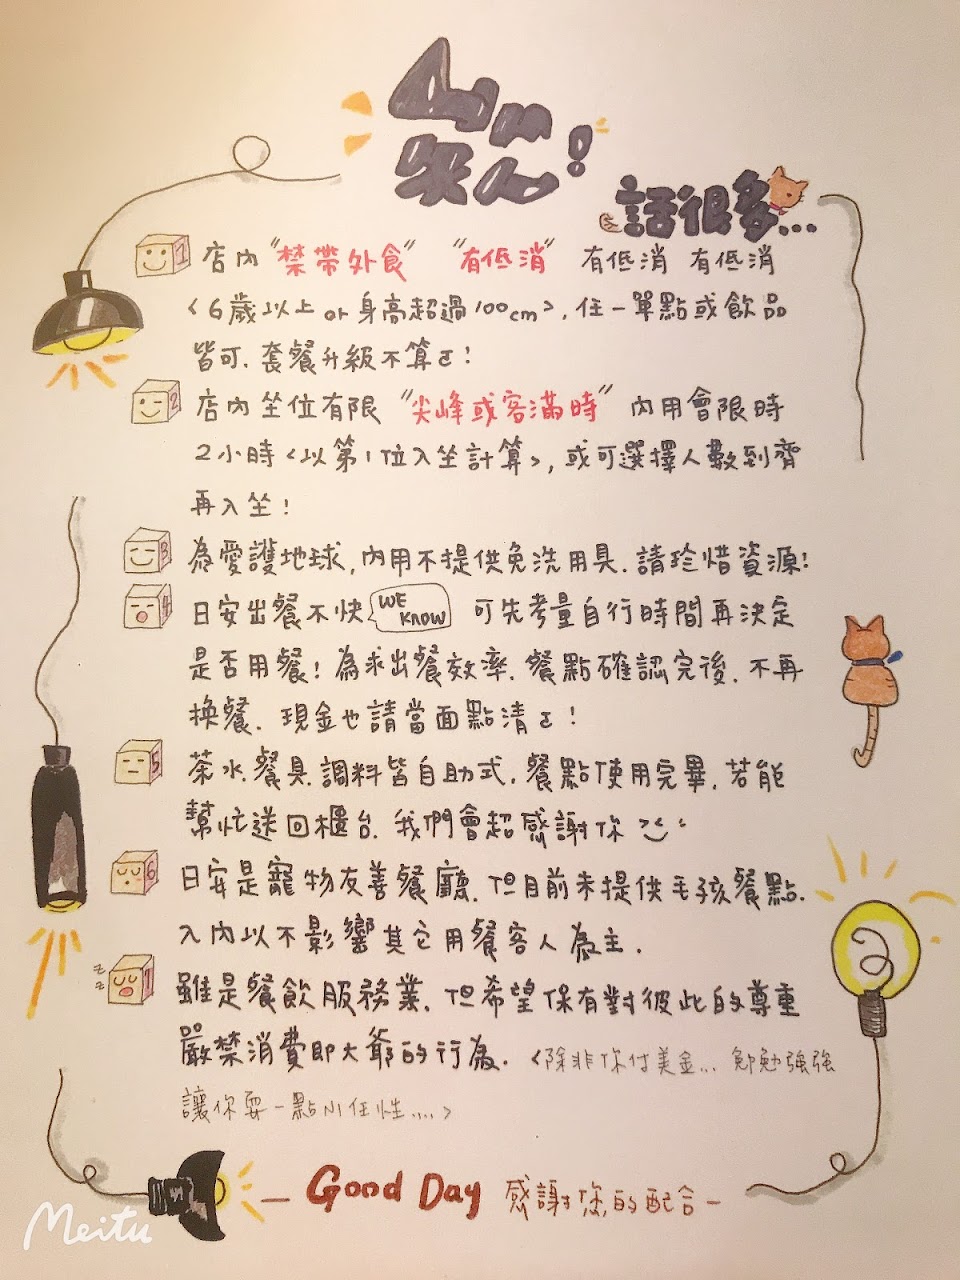 話很多...
1 店內"禁帶外食" "有低消" 有低消 有低消
<6歲以上 or 身高超過100cm>, 任一單點或飲品
皆可. 套餐升級不算ㄛ!
2 店內坐位有限 "尖峰或客滿時" 內用會限時
2小時<以第1位入坐計算>, 或可選擇人數到齊
再入坐!
3 為愛護地球, 內用不提供免洗用具. 請珍惜資源!
4 日安出餐不快 WE KNOW 可先考量自行時間再決定
是否用餐! 為求出餐效率. 餐點確認完後. 不再
換餐. 現金也請當面點清ㄛ!
5 茶水.餐具.調料皆自助式. 餐點使用完畢. 若能
幫忙送回櫃台. 我們會超感謝你
6 日安是寵物友善餐廳. 但目前未提供毛孩餐點.
入內以不影響其它用餐客人為主.
zzz 7 雖是餐飲服務業. 但希望保有對彼此的尊重
嚴禁消費即大爺的行為. <除非你付美金... 勉勉強強
讓你耍一點小任性....>
— Good Day 感謝您的配合 —
Meitu